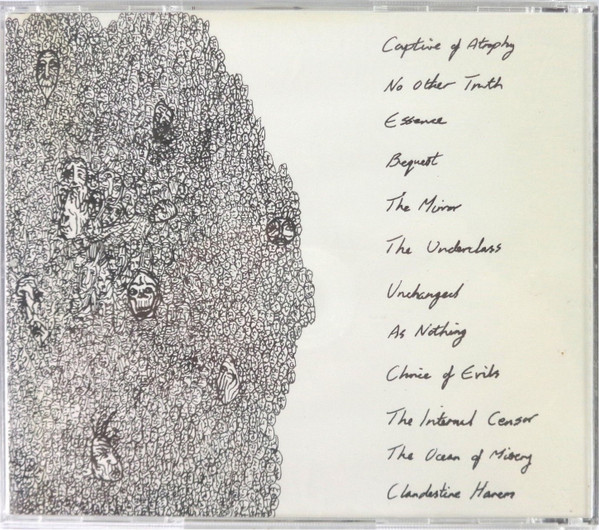 Captive of Atrophy
No Other Truth
Essence
Bequest
The Mirror
The Underclass
Unchanged
As Nothing
Choice of Evils
The Internal Censor
The Ocean of Misery
Clandestine Harem